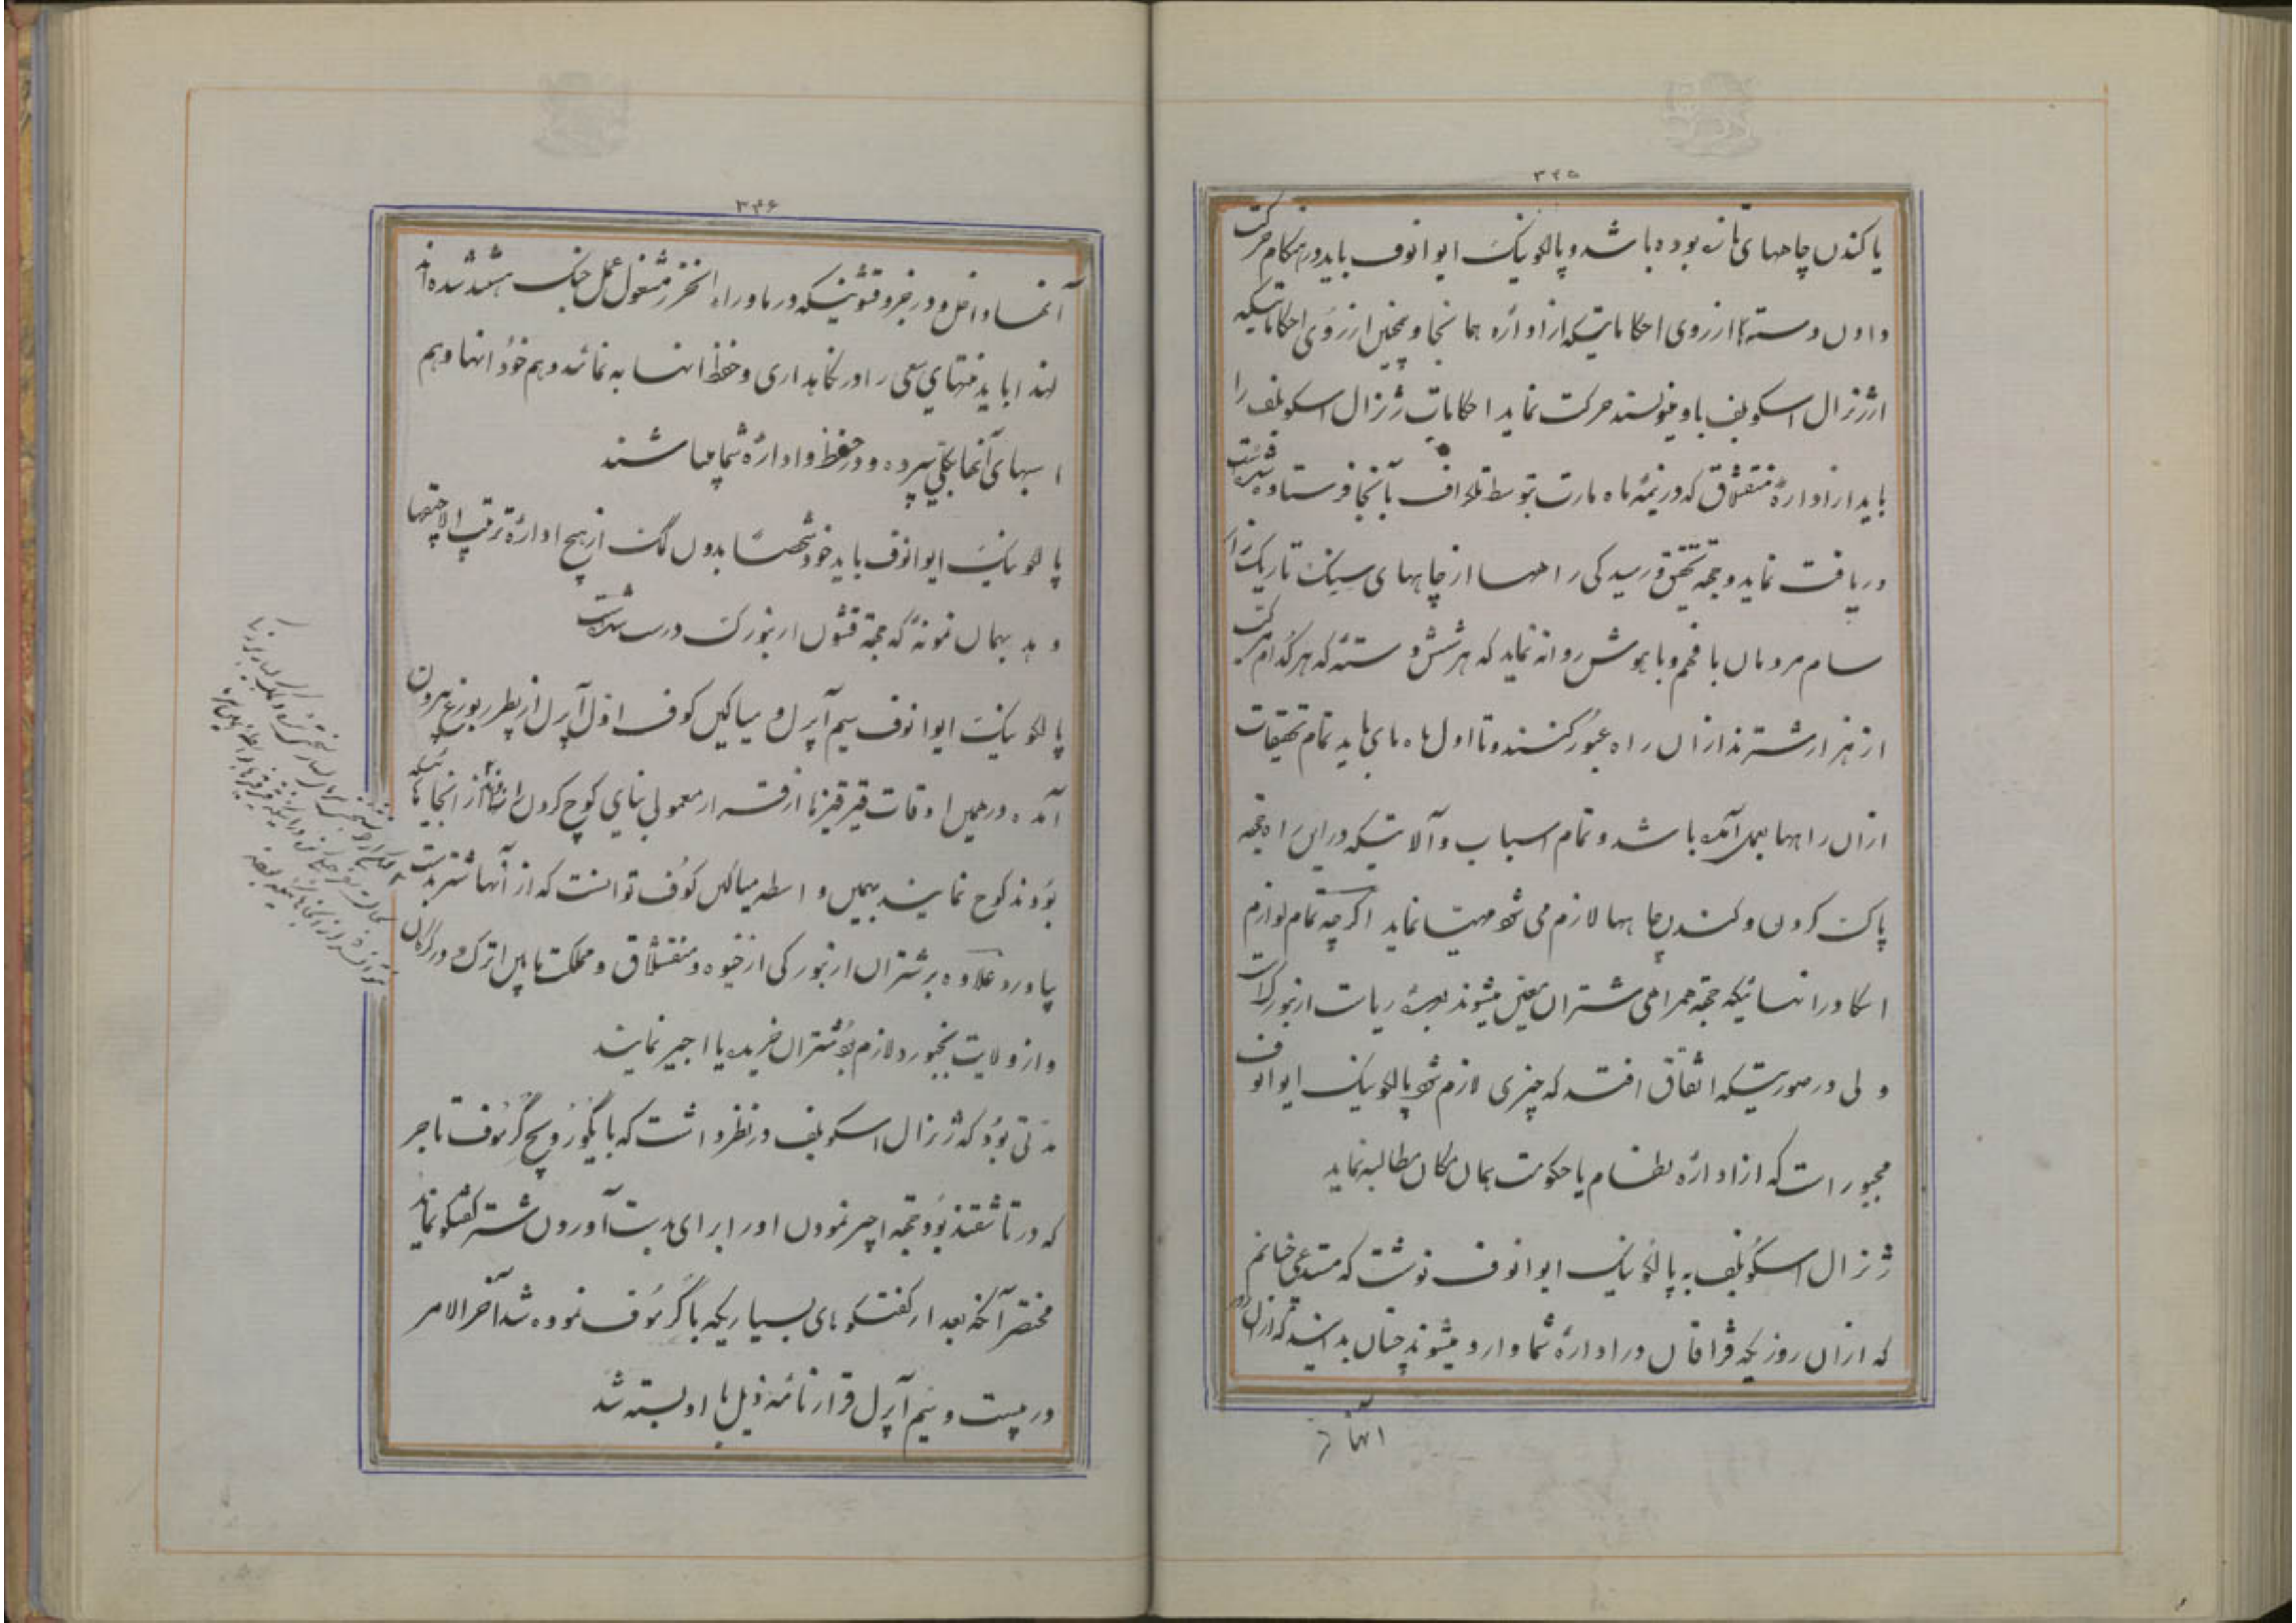 ۳۴۵
یا کندن چاههای تازه بوده باشد و پالکوینک ایوانوف باید در هنگام حرکت
دادن دسته‌ها از روی احکاماتیکه از اداره همانجا و همچنین از روی احکاماتیکه
از ژنرال اسکوبلف باو مینویسند حرکت نماید احکامات ژنرال اسکوبلف را
باید از ادارهٔ منقشلاق که در نیمهٔ ماه مارت بتوسط تلغراف بآنجا فرستاده شده است
دریافت نماید و جهة تحقیق و رسیدگی راهها از چاههای
سام مردمان با فهم و با هوش روانه نماید که هر شش دسته که هر کدام مرکب
از هزار شترند از آن راه عبور کنند و تا اول ماه مای باید تمام تحقیقات
از آن راهها بعمل آمده باشد و تمام اسباب و آلاتیکه در این راه جهة
پاک کردن و کندن چاهها لازم می شود مهیا نماید اگر چه تمام لوازم
جهة همراهی شتران معین میشوند ارنبورک است
ولی در صورتیکه اتفاق افتد که چیزی لازم شود پالکوینک ایوانوف
مجبور است که از ادارهٔ نظام یا حکومت همان مکان مطالبه نماید
ژنرال اسکوبلف به پالکوینک ایوانوف نوشت که مستدعی چنانم
که از آن روزیکه قزاقان در ادارهٔ شما وارد میشوند چنان بدانید که از آن روز
آنها در
۳۴۶
آنها داخل و در جزو قشونیکه در ماوراء الخزر مشغول عمل جنک هستند شده‌اند
لهذا باید منتهای سعی را در نگاهداری و حفظ آنها به نمائید و هم خود آنها و هم
اسبهای آنها بکلی سپرده و در حفظ و ادارهٔ شما میباشند
پالکوینک ایوانوف باید خود شخصاً بدون کمک از هیچ ادارهٔ ترتیب الاچیقها
دهد بهمان نمونهٔ که جهة قشون ارنبورک درست شده است
پالکوینک ایوانوف سیم آپرل و میاکین کوف اول آپرل از پطربورغ بیرون
آمده در همین اوقات قیرقیزها از قرار معمولی بنای کوچ کردن از آنجا
بودند کوچ نمایند بهمین واسطه میاکین کوف توانست که از آنها شتر بدست
بیاورد علاوه بر شتران ارنبورکی از خیوه و منقشلاق و مملکت مابین اترک و در گرگان
و از ولایت بجنورد لازم بود شتران خریده یا اجیر نمایند
مدتی بود که ژنرال اسکوبلف در نظر داشت که با گروموف تاجر
که در تاشقند بود جهة اجیر نمودن او را برای بدست آوردن شتر گفتگو نماید
مختصر آنکه بعد از گفتگوهای بسیاریکه با گروموف نموده شد آخر الامر
در بیست و پنجم آپرل قرارنامهٔ ذیل با او بسته شد